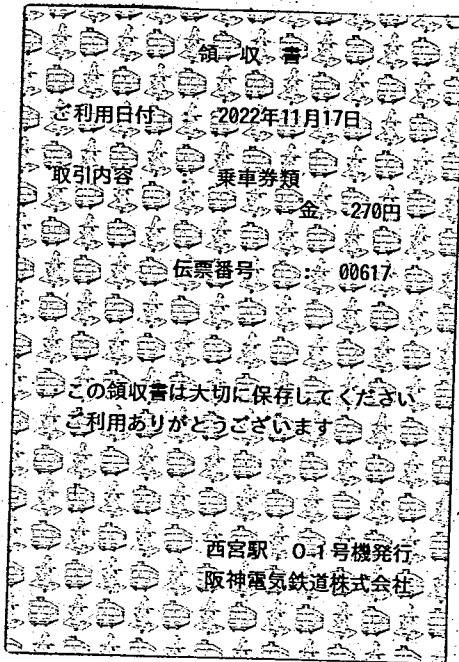 領 収 書
ご利用日付 : 2022年11月17日
取引内容 : 乗車券類
金 270円
伝票番号 : 00617
この領収書は大切に保存してください
ご利用ありがとうございます
西宮駅 01号機発行
阪神電気鉄道株式会社